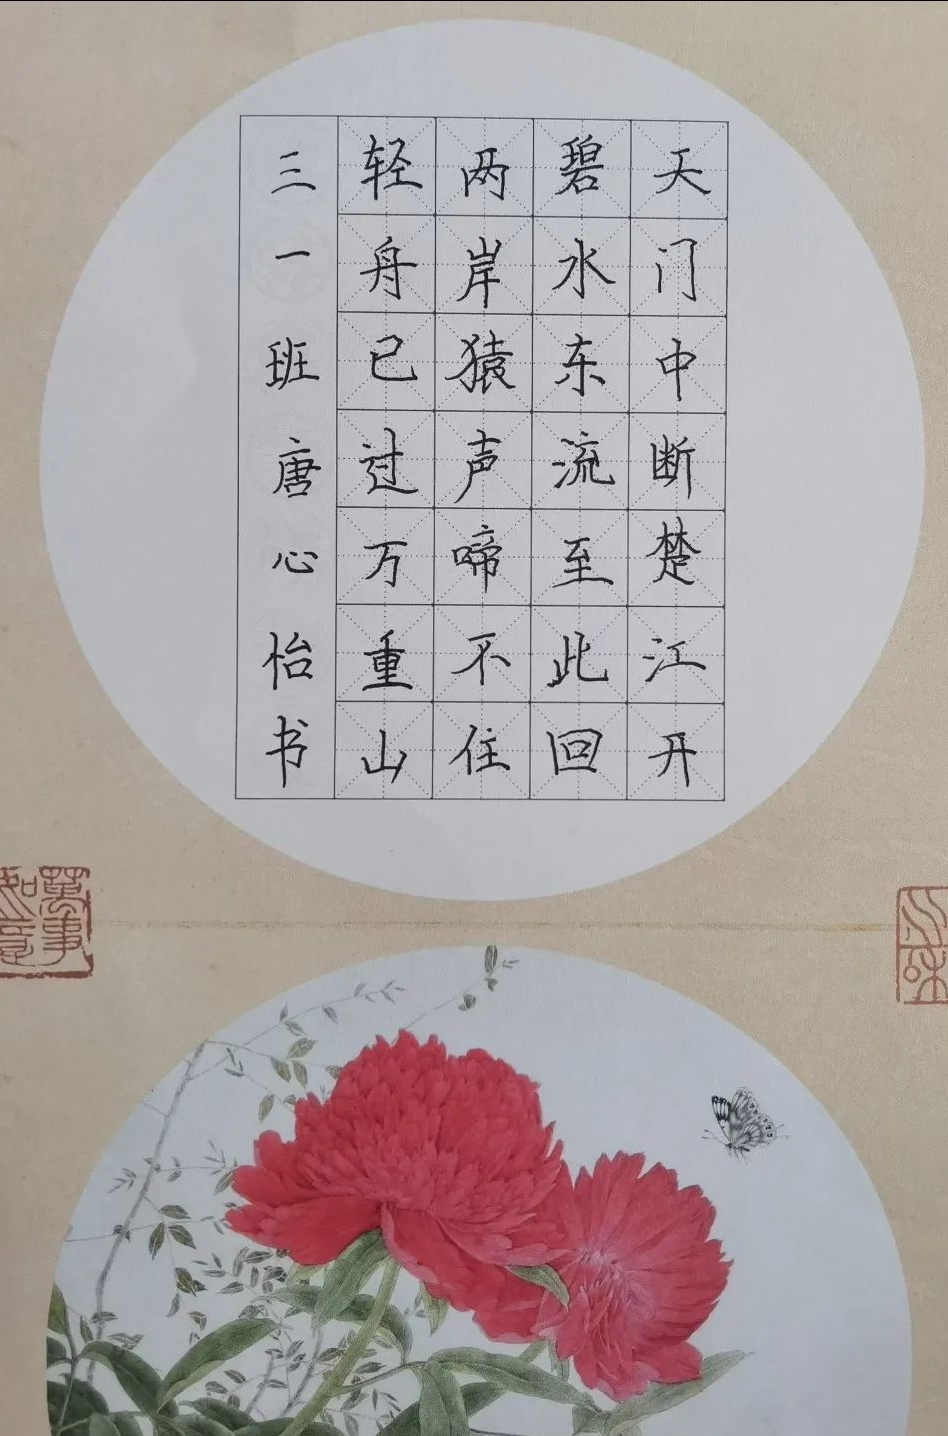 天门中断楚江开
碧水东流至此回
两岸猿声啼不住
轻舟已过万重山
三一班唐心怡书
萬事如意